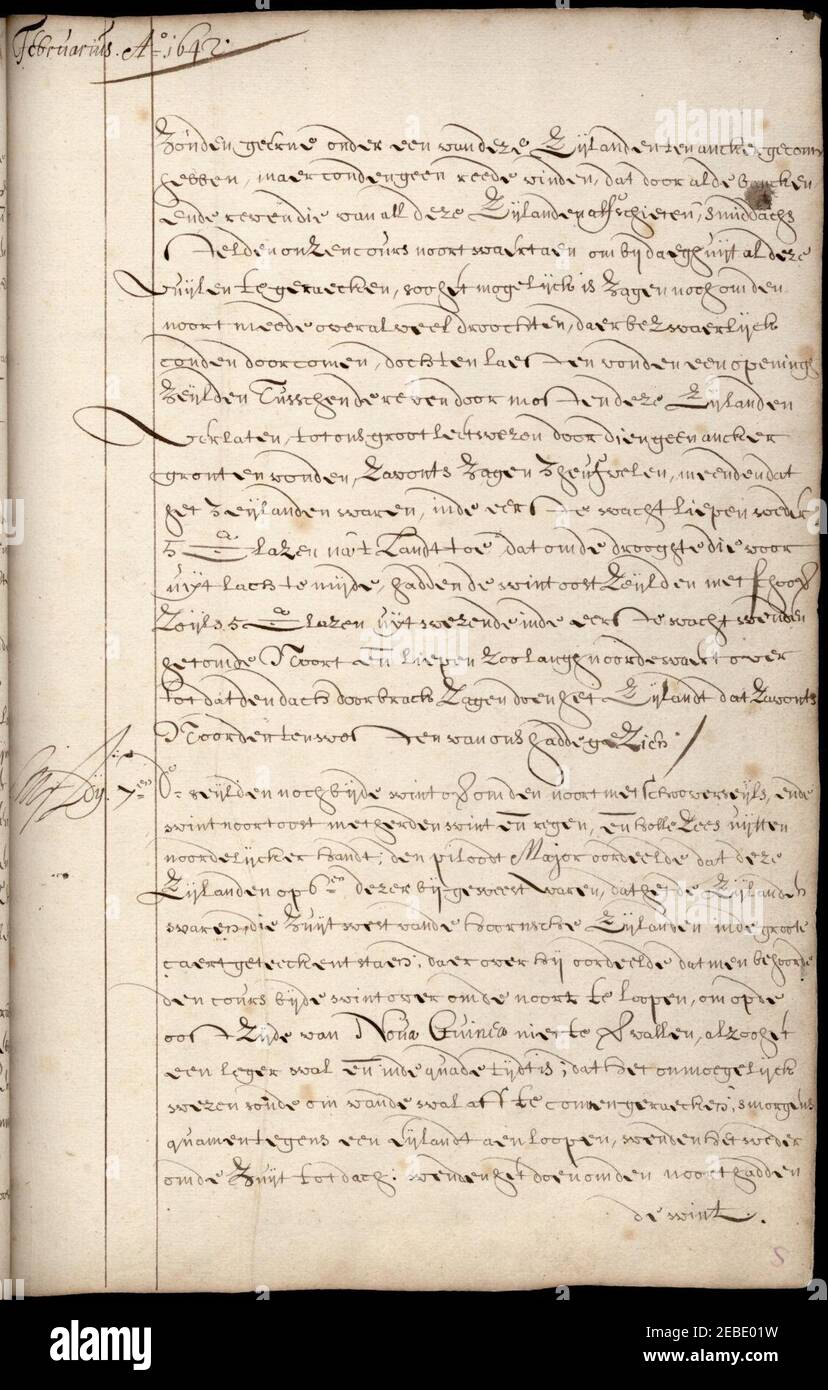 Februarius. Aº 1642.
zouden geerne onder een van deze Eijlanden ten ancker gecomen
hebben, maer conden geen reede vinden, dat door alde bancken
ende reven die van all deze Eijlanden aff schieten, smiddachs
stelden onzen cours noortwaert aen om bij daegh uijt al deze
vuijlen te geraecken, soo het mogelijck is zagen noch om den
noort meede overal veel droochten, daer bezwaerlijck
conden doorcomen, doch ten laesten vonden een openingh
zeijlden tusschen de reven door mosten deze Eijlanden
verlaten, tot ons groot leetwezen door dien geen ancker
gront en vonden, zavonts zagen 3 heufvelen, meenden dat
het 3 eijlanden waren, inde eerste wacht liepen weder
5 Glazen nat Landt toe, dat om de drooghte die voor
uijt lach te mijde, hadden de wint oost zeijlden met schoover
zeijls 5 Glazen uijt wezende inde eerste wacht wenden
het om de Noort en liepen zoo langh noordewaert over
tot dat den dach doorbrach zagen doen het Eijlandt dat zavonts
Noorden ten westen van ons hadde gezien /
7en do zeijlden noch bij de wint over om den noort met schooverseijls, ende
wint noortoost met herden wint en regen, en holle zees uijtten
noordelijcker handt; den piloodt Major oordeelde dat deze
Eijlanden op 6en dezer bij geweest waren, dat het de Eijlanden
waren, die zuijtwest vande hoornsche Eijlanden inde groote
caert geteeckent staen; daer over hij oordeelde dat men behoorde
den cours bij de wint over om de noort te loopen, om op de
oost zijde van Nova Guinea niet te vervallen, alzoo het
een leger wal en inde quade tijdt is; dat het onmoegelijck
wezen soude om vande wal aff te comen geraecken; smorgens
quamen tegens een eijlandt aen loopen, wenden het weder
om de zuijt tot dach; wenden het doen om den noort hadden
de wint.